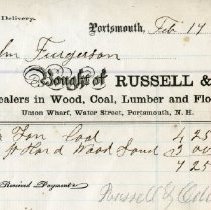 Delivery.
Portsmouth, Feb 14
John Furgerson
Bought of RUSSELL &
ealers in Wood, Coal, Lumber and Flo
Union Wharf, Water Street, Portsmouth, N. H.
Ton Coal 4 25
Hard Wood Sawd 3 00
7 25
Received Payment
Russell &